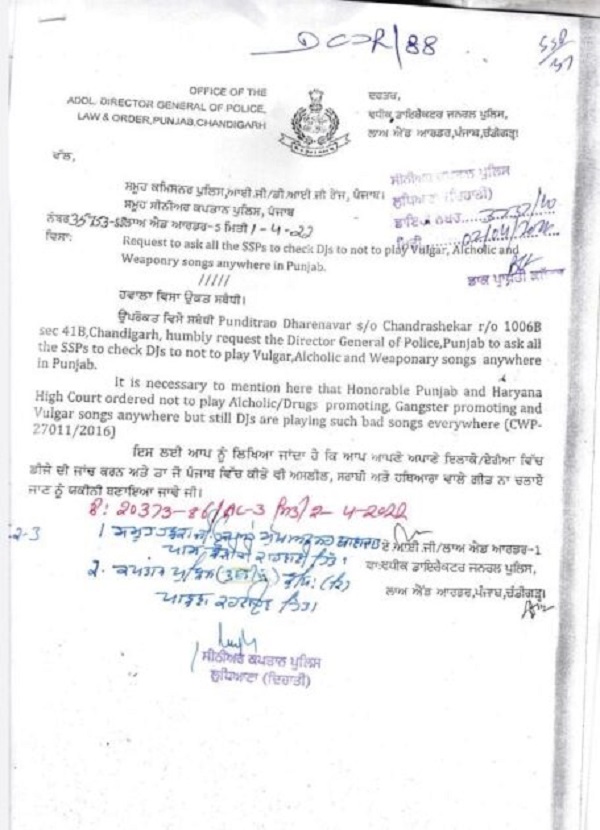 DCOR/88
OFFICE OF THE
ADDL. DIRECTOR GENERAL OF POLICE,
LAW & ORDER, PUNJAB, CHANDIGARH
ਦਫਤਰ,
ਵਧੀਕ ਡਾਇਰੈਕਟਰ ਜਨਰਲ ਪੁਲਿਸ,
ਲਾਅ ਐਂਡ ਆਰਡਰ, ਪੰਜਾਬ, ਚੰਡੀਗੜ੍ਹ।
ਵੱਲ,
ਸਮੂਹ ਕਮਿਸ਼ਨਰ ਪੁਲਿਸ,ਆਈ.ਜੀ/ਡੀ.ਆਈ ਜੀ ਰੇਂਜ, ਪੰਜਾਬ।
ਸਮੂਹ ਸੀਨੀਅਰ ਕਪਤਾਨ ਪੁਲਿਸ, ਪੰਜਾਬ
ਸੀਨੀਅਰ ਕਪਤਾਨ ਪੁਲਿਸ
ਲੁਧਿਆਣਾ (ਦਿਹਾਤੀ)
ਨੰਬਰ ਲਾਅ ਐਂਡ ਆਰਡਰ-5 ਮਿਤੀ 1-4-22
ਵਿਸ਼ਾ:
Request to ask all the SSPs to check DJs to not to play Vulgar, Alcholic and
Weaponry songs anywhere in Punjab.
/////
ਹਵਾਲਾ ਵਿਸ਼ਾ ਉਕਤ ਸਬੰਧੀ।
ਉਪਰੋਕਤ ਵਿਸ਼ੇ ਸਬੰਧੀ Punditrao Dharenavar s/o Chandrashekar r/o 1006B
sec 41B,Chandigarh, humbly request the Director General of Police,Punjab to ask all
the SSPs to check DJs to not to play Vulgar,Alcholic and Weaponary songs anywhere
in Punjab.
It is necessary to mention here that Honorable Punjab and Haryana
High Court ordered not to play Alcholic/Drugs promoting, Gangster promoting and
Vulgar songs anywhere but still DJs are playing such bad songs everywhere (CWP-
27011/2016)
ਇਸ ਲਈ ਆਪ ਨੂੰ ਲਿਖਿਆ ਜਾਂਦਾ ਹੈ ਕਿ ਆਪ ਆਪਣੇ ਅਪਾਣੇ ਇਲਾਕੇ/ਏਰੀਆ ਵਿੱਚ
ਡੀਜੇ ਦੀ ਜਾਂਚ ਕਰਨ ਅਤੇ ਤਾਂ ਜੋ ਪੰਜਾਬ ਵਿੱਚ ਕੀਤੇ ਵੀ ਅਸ਼ਲੀਲ, ਸ਼ਰਾਬੀ ਅਤੇ ਹਥਿਆਰਾ ਵਾਲੇ ਗੀਤ ਨਾ ਚਲਾਏ
ਜਾਣ ਨੂੰ ਯਕੀਨੀ ਬਣਾਇਆ ਜਾਵੇ ਜੀ।
20373-86/AC-3 2-4-2022
ਏ.ਆਈ.ਜੀ/ਲਾਅ ਐਂਡ ਆਰਡਰ-1
ਵਾ:ਵਧੀਕ ਡਾਇਰੈਕਟਰ ਜਨਰਲ ਪੁਲਿਸ,
ਲਾਅ ਐਂਡ ਆਰਡਰ,ਪੰਜਾਬ,ਚੰਡੀਗੜ੍ਹ।
ਸੀਨੀਅਰ ਕਪਤਾਨ ਪੁਲਿਸ
ਲੁਧਿਆਣਾ (ਦਿਹਾਤੀ)